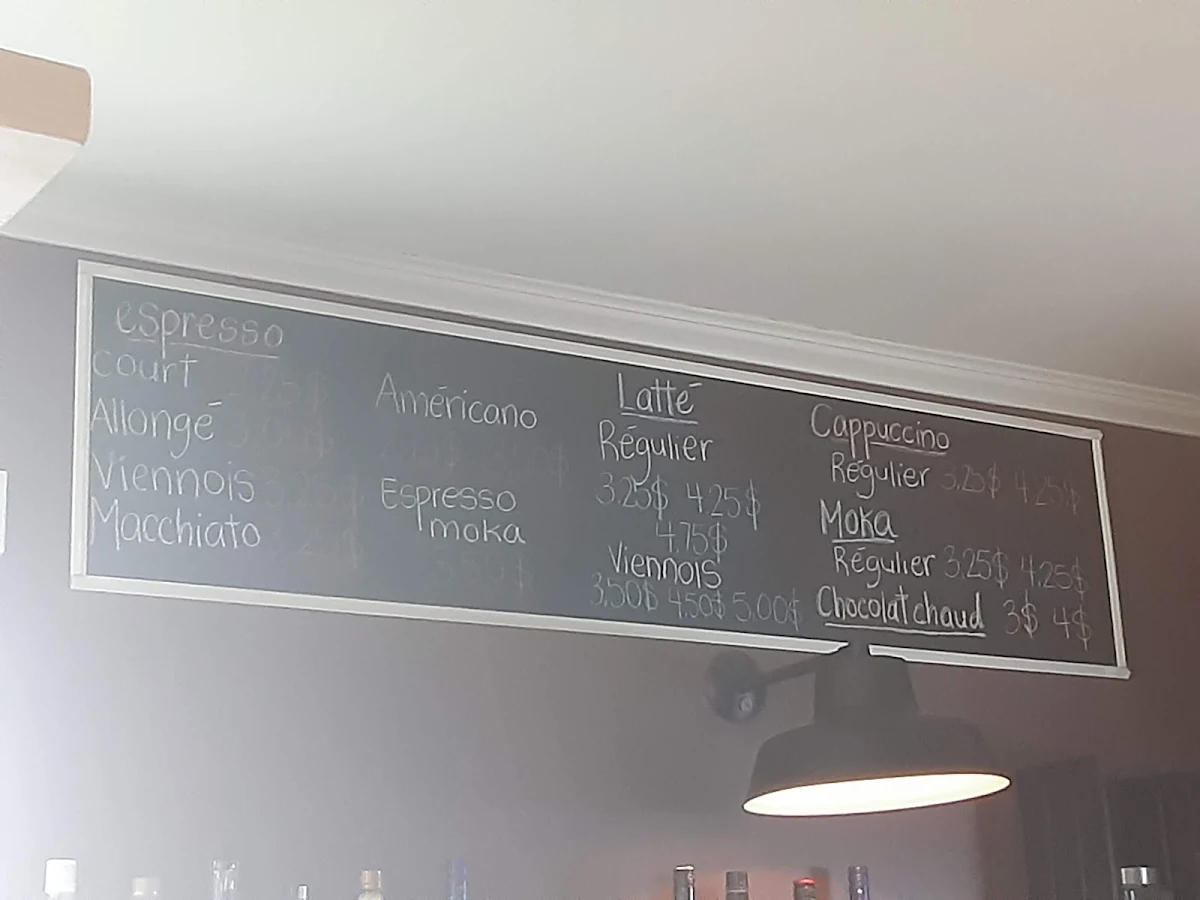 espresso
court
Allongé
Viennois
Macchiato
Américano
Espresso
moka
Latté
Régulier
3.25$ 4.25$
4.75$
Viennois
3.50$ 4.50$ 5.00$
Cappuccino
Régulier 3.25$ 4.25$
Moka
Régulier 3.25$ 4.25$
Chocolat chaud 3$ 4$